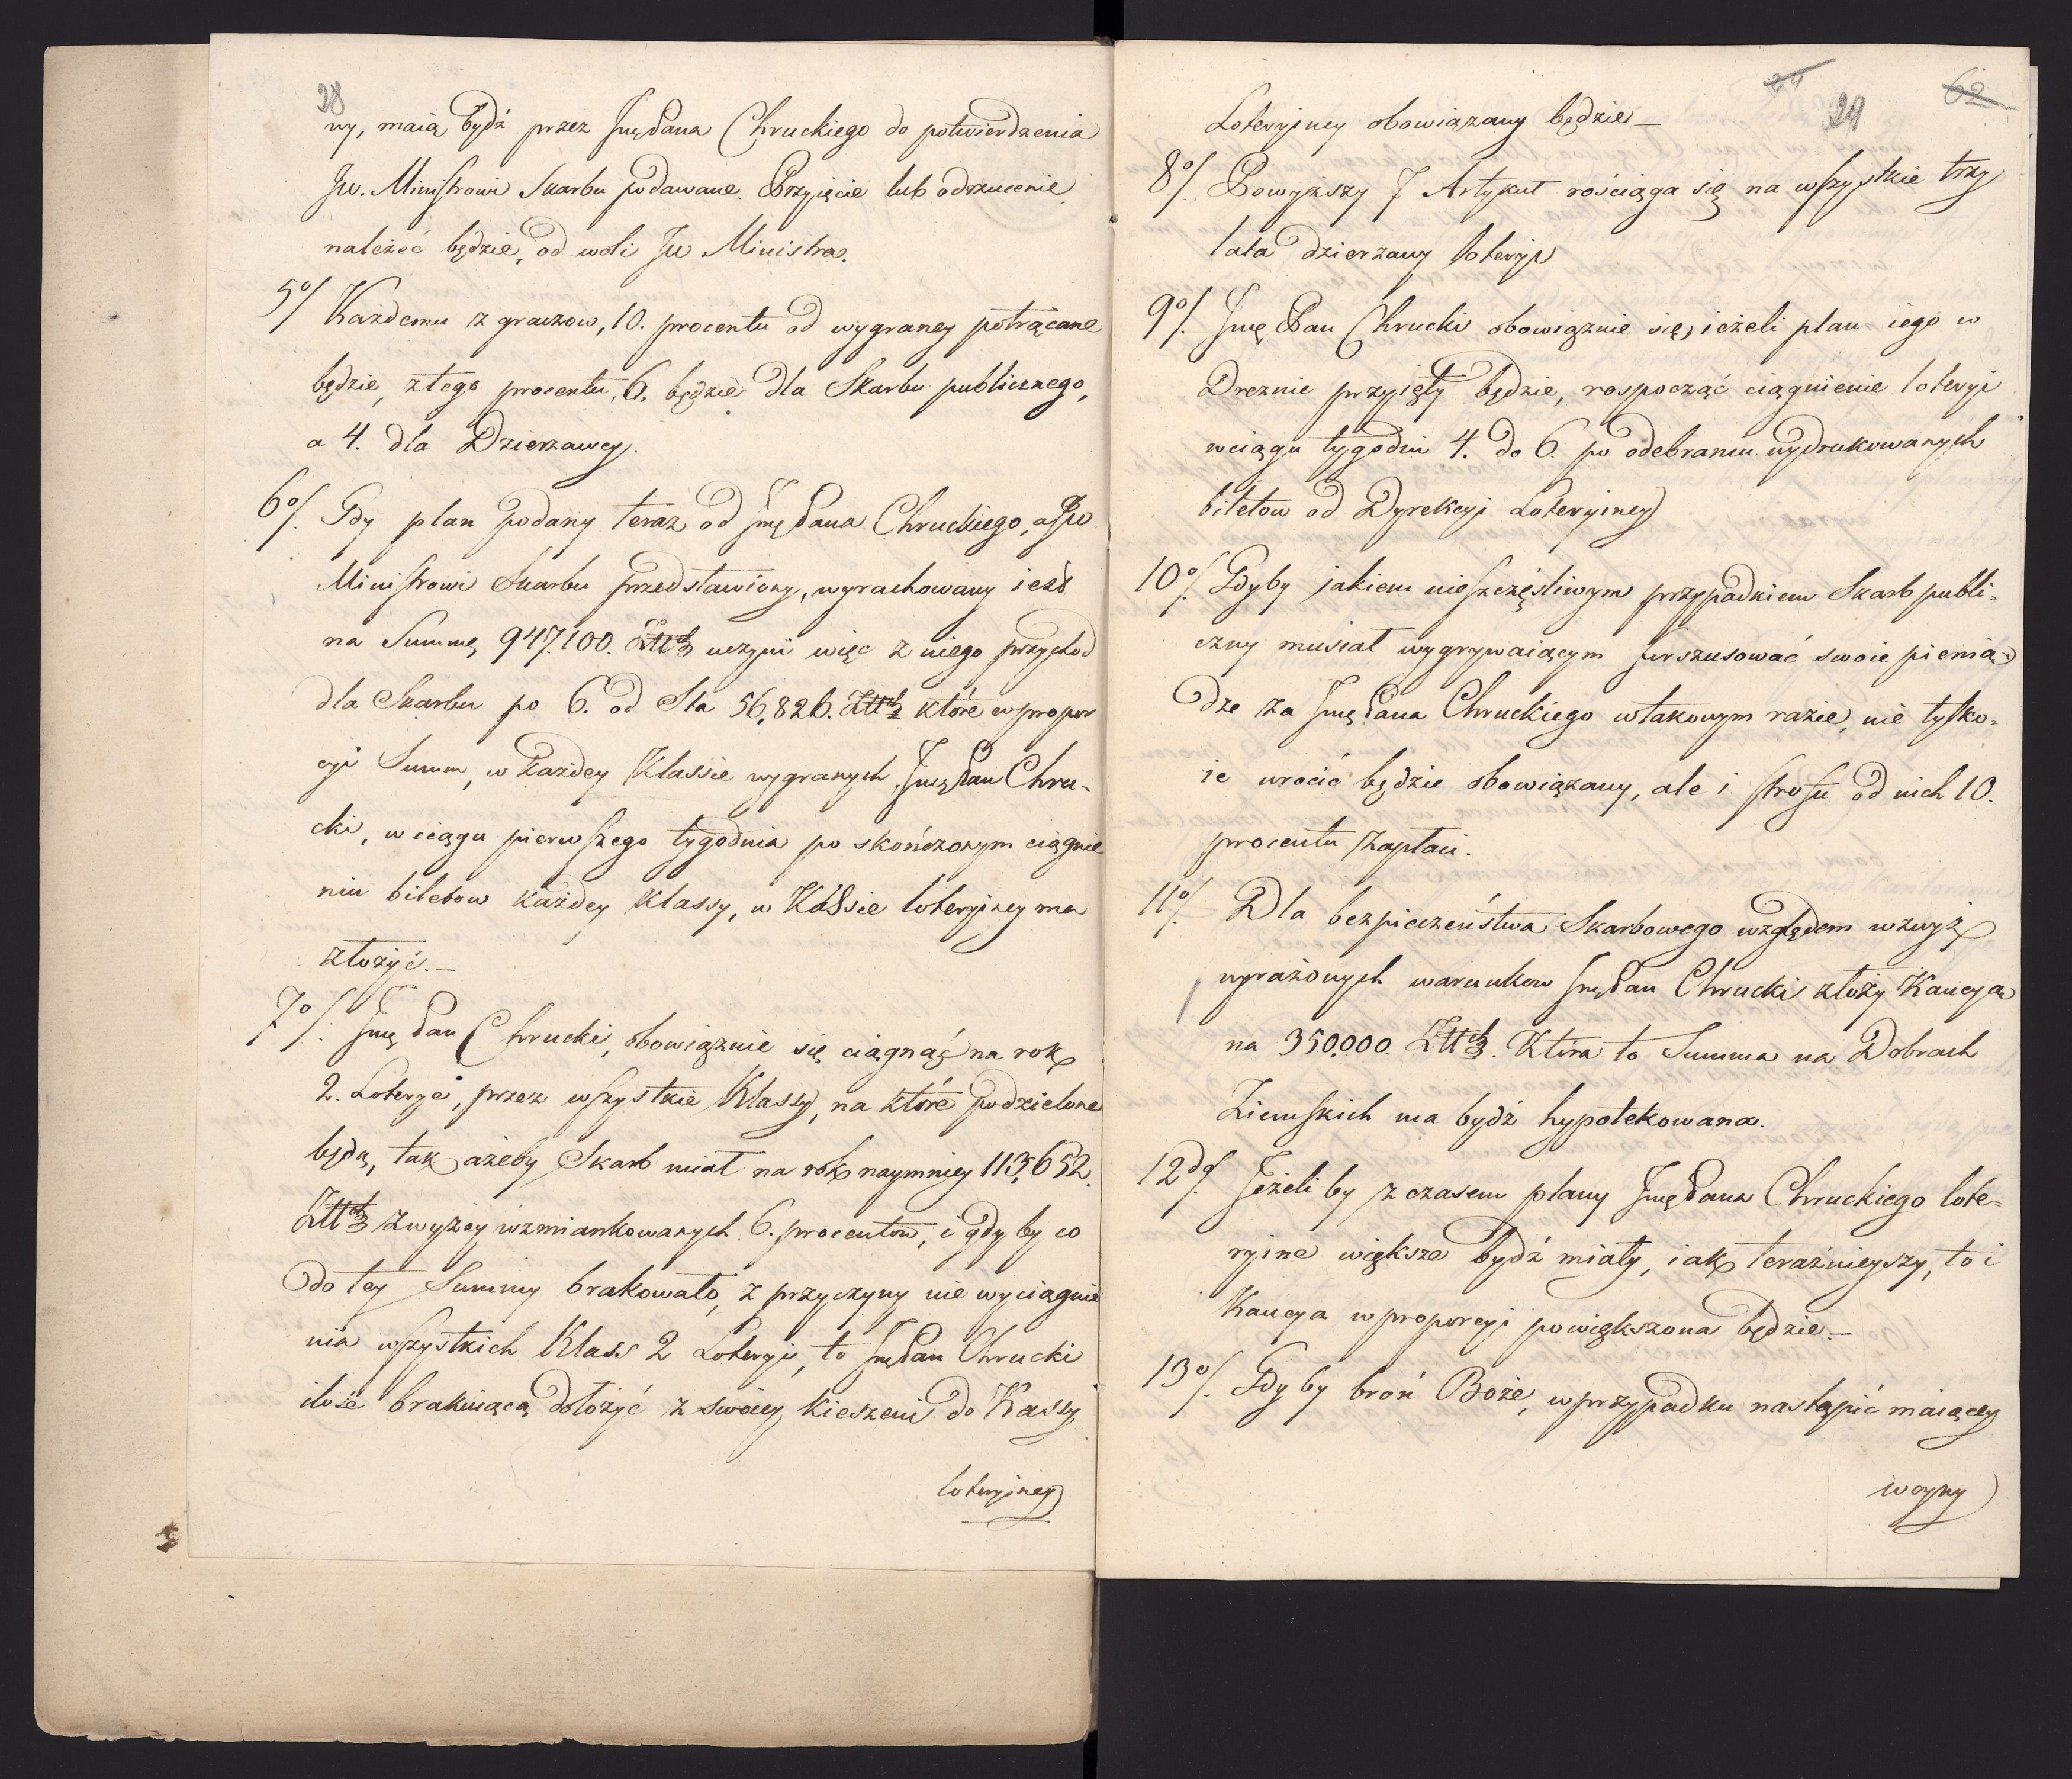 28
ny, maią bydź przez Jmę Pana Chruckiego do potwierdzenia
Jw. Ministrowi Skarbu podawane. Przyięcie lub odrzucenie
należeć będzie, od woli Jw Ministra.
5o/ Każdemu z graczow, 10. procentu od wygraney potrącane
będzie, z tego procentu, 6. będzie dla Skarbu publicznego,
a 4. dla Dzierzawcy.
6o/. Gdy plan podany teraz od Jmę Pana Chruckiego, a Jw
Ministrowi Skarbu przedstawiony, wyrachowany iest
na Summę 947.100. uczyni więc z niego przychod
dla Skarbu po 6. od Sta 56,826. które w propor
cyi Summ, w każdey Klassie wygranych, Jmę Pan Chru-
cki, w ciągu pierwszego tygodnia po skończonym ciągnie
niu biletow każdey klassy, w Kassie loteryiney ma
złożyć.—
7o/. Jmę Pan Chrucki, obowiązuie się ciągnąć na rok
2. Loterye, przez wszystkie Klassy, na które podzielone
będą, tak ażeby Skarb miał na rok naymniey 113,652.
zwyżey wzmiankowanych 6. procentow, i gdy by co
do tey Summy brakowało, z przyczyny nie wyciągnie
nia wszystkich Klass 2 Loteryi, to Jmę Pan Chrucki
ilość brakuiącą dołożyć z swoiey kieszeni do Kassy
loteryiney
24 29 62
Loteryiney obowiązany będzie—
8o/. Powyższy 7 Artykuł rościąga się na wszystkie trzy
lata dzierzawy loteryi
9o/. Jmę Pan Chrucki obowiązuie się, ieżeli plan iego w
Dreznie przyięty będzie, rospocząć ciągnienie loteryi
wciągu tygodni 4. do 6. po odebraniu wydrukowanych
biletow od Dyrekcyi Loteryiney
10o/. Gdyby jakiem nieszczęśliwym przypadkiem Skarb publi-
czny musiał wygrywaiącym forszusować swoie pienią-
dze za Jmę Pana Chruckiego wtakowym razie, nie tylko-
ie wrocić będzie obowiązany, ale i od nich 10.
procentu zapłaci.
11o/. Dla bezpieczeństwa Skarbowego względem wzwyż
wyrażonych warunkow Jmę Pan Chrucki złoży Kaucyą
na 350,000. Która to Summa na Dobrach
Ziemskich ma bydź hypotekowana.
12do/. Jeżeli by z czasem plany Jmę Pana Chruckiego lote-
ryine większe bydź miały, iak teraźnieyszy, to i
Kaucya w proporcyi powiększona będzie.—
13o/. Gdy by broń Boże, w przypadku nastąpić maiącey
woyny